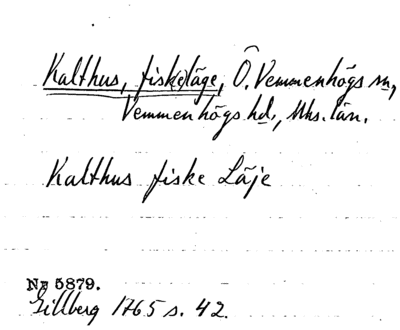 Kalthus, fiskeläge, Ö. Vemmenhögs sn,
Vemmenhögs hd., Mhs. län.
Kalthus fiske Läje
No 5879.
Gillberg 1765 s. 42.